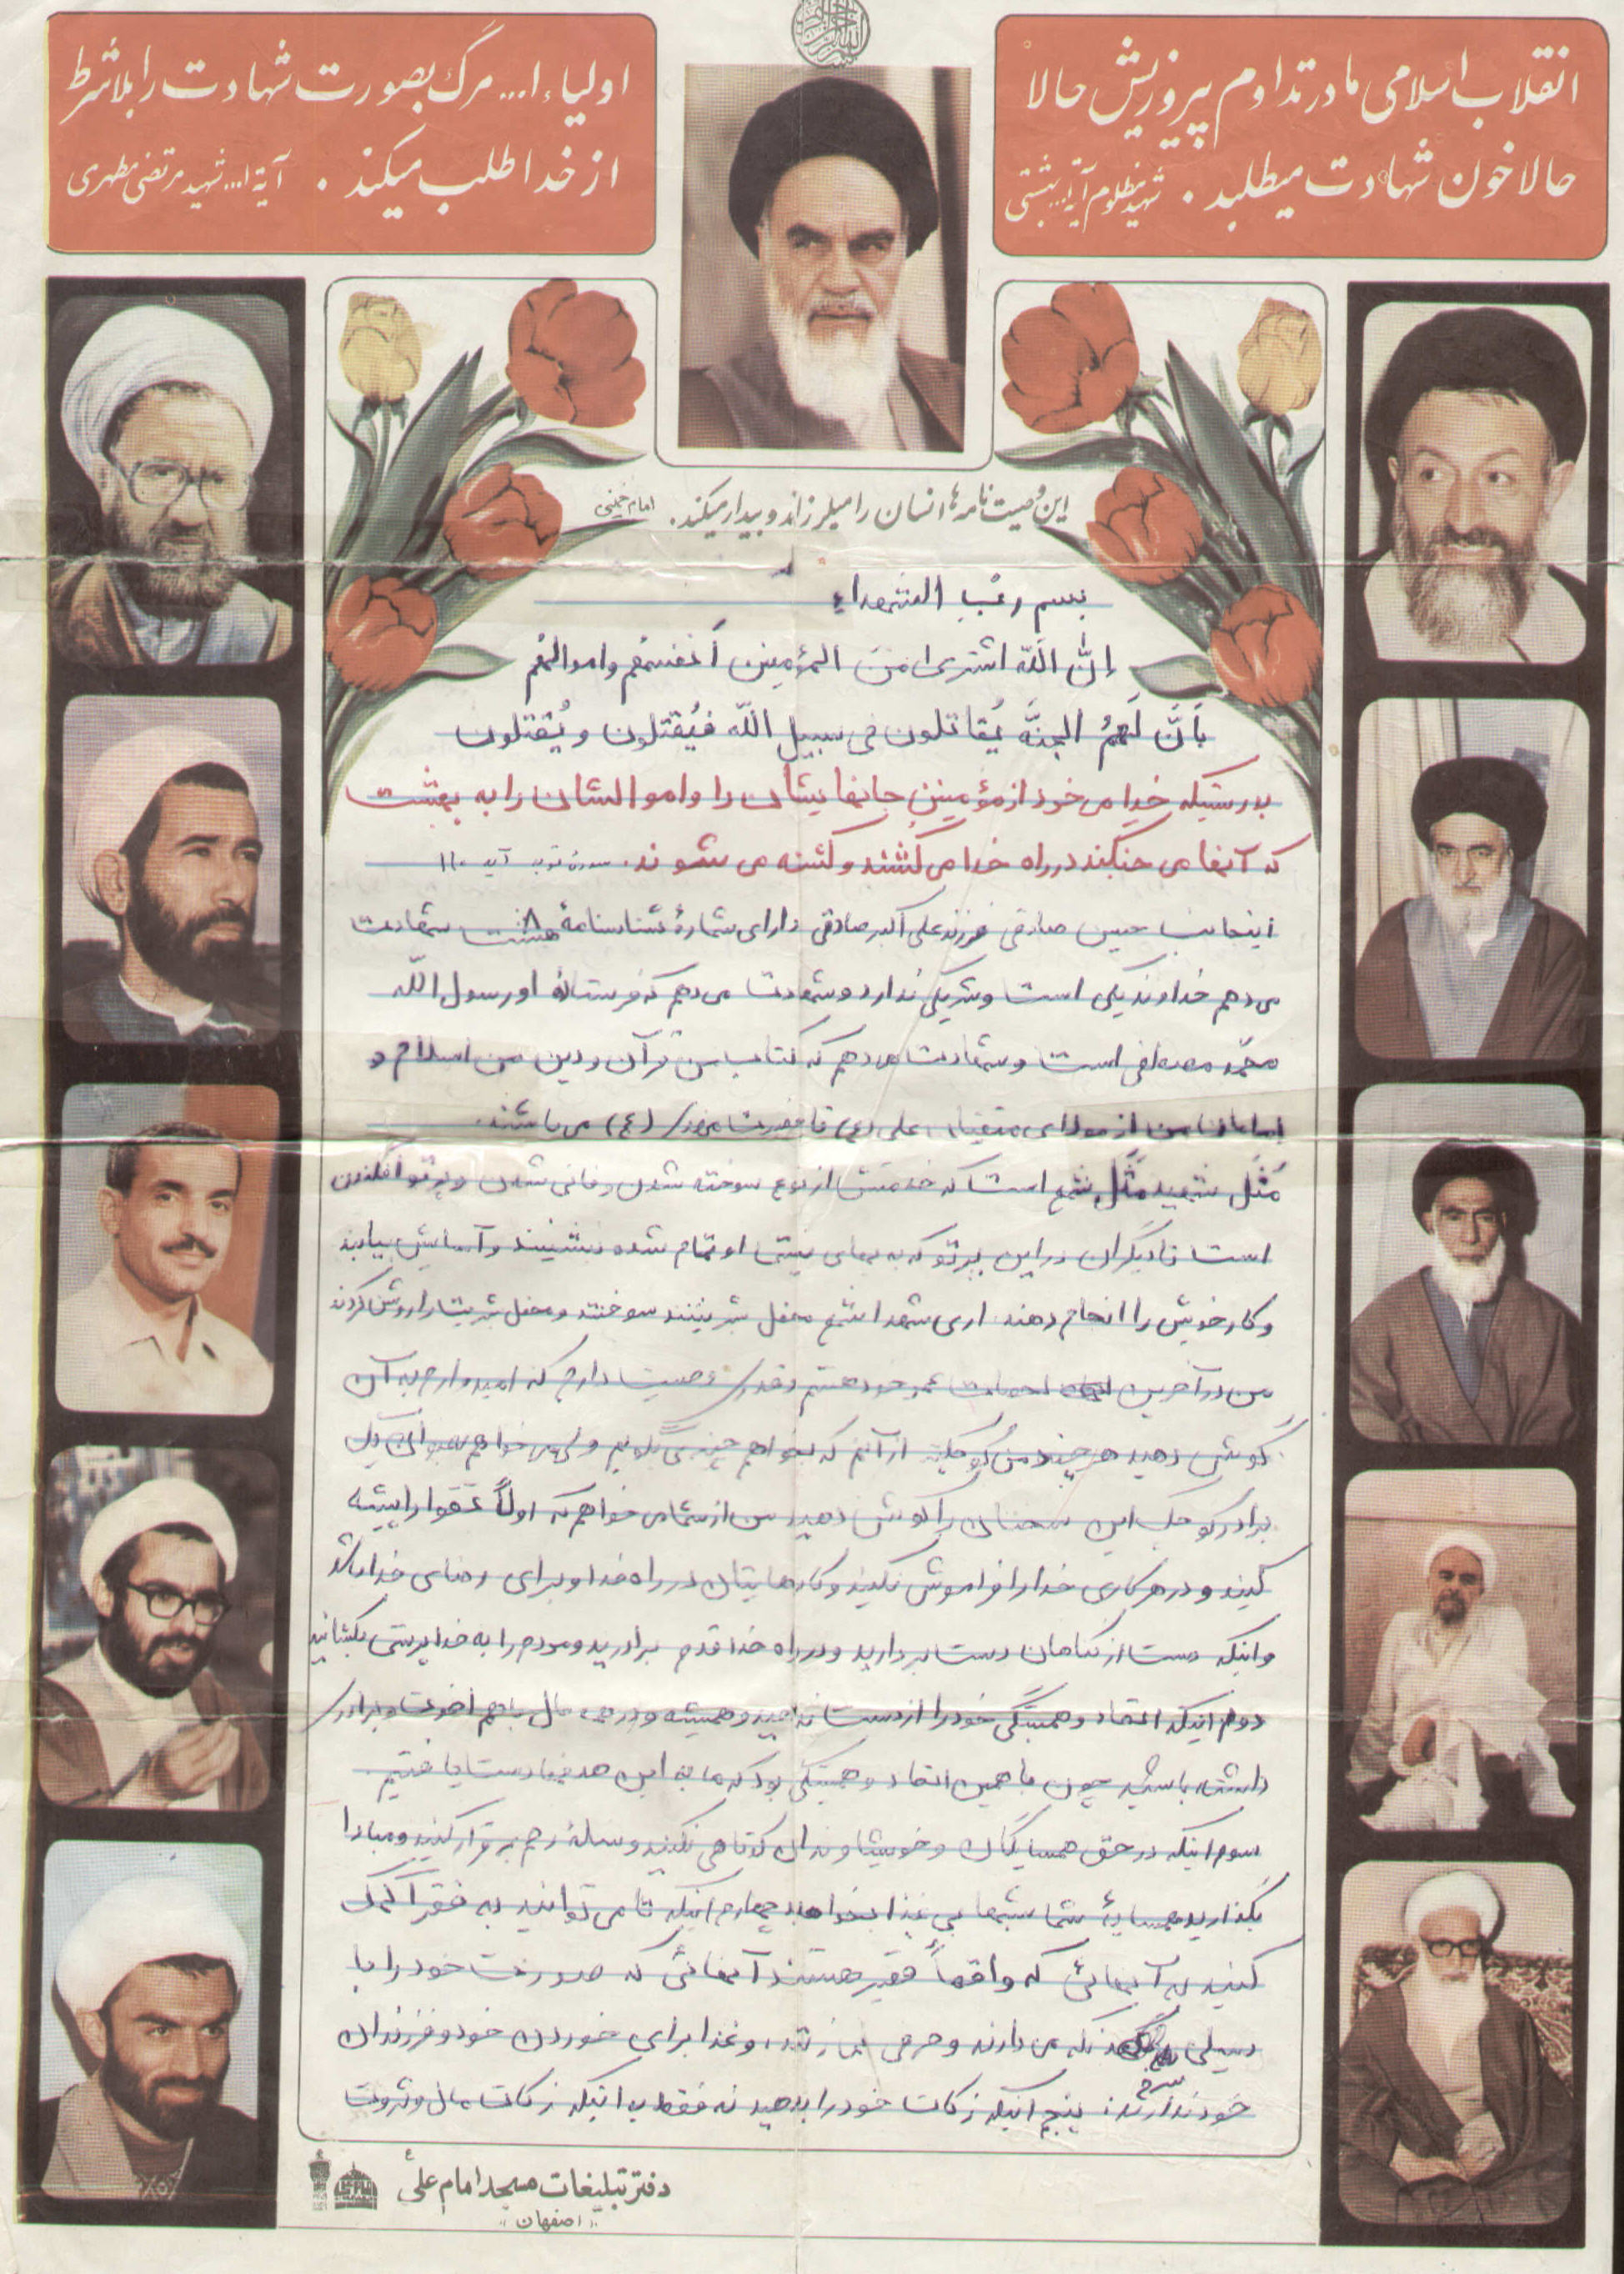 انقلاب اسلامی ما در تداوم پیروزیش حالا
حالا خون شهادت میطلبد . شهید مظلوم آیة ا... بهشتی
اولیاء ا... مرگ بصورت شهادت را بلا شرط
از خدا طلب میکند . آیة ا... شهید مرتضی مطهری
این وصیت نامه ها انسان را میلرزاند و بیدار میکند. امام خمینی
بسم رب الشهداء
إنَّ اللّه اشتری من المؤمنین أنفسهُم و اموالهُم
بأنَّ لَهمُ الجنَّة یُقاتلون فی سبیل اللّه فیُقتلون و یُقتلون
بدرستیکه خدا می خرد از مؤمنین جانهایشان را و اموالشان را به بهشت
که آنها می جنگند در راه خدا می کُشند و کشته می شوند. سورۀ توبه آیه ۱۱۰
اینجانب حسین صادقی فرزند علی اکبر صادقی دارای شمارۀ شناسنامۀ ۸ هشت شهادت
می دهم خداوند یکی است و شریکی ندارد و شهادت می دهم که فرستادۀ او رسول اللّه
محمّد مصطفی است و شهادت می دهم که کتاب من قرآن و دین من اسلام و
امامان من از مولای متقیان علی (ع) تا حضرت مهدی (ع) می باشند.
مَثَل شهید مَثَل شمع است که خدمتش از نوع سوخته شدن و فانی شدن و پرتو افکندن
است تا دیگران در این پرتو که به بهای نیستی او تمام شده بنشینند و آسایش بیابند
و کار خویش را انجام دهند. آری شهدا شمع محفل بشریتند سوختند و محفل بشریت را روشن کردند
من در آخرین لحظات عمر خود هستم و قدری وصیت دارم که امیدوارم به آن
گوش دهید هر چند من کوچکتر از آنم که بخواهم چیزی بگویم ولی می خواهم بعنوان یک
برادر کوچک این سخنان را گوش دهید من از شما می خواهم که اولاً تقوا را پیشه
کنید و در هر کاری خدا را فراموش نکنید و کارهایتان در راه خدا و برای رضای خدا باشد
و اینکه دست از گناهان دست بردارید و در راه خدا قدم بردارید و مردم را به خداپرستی بکشانید
دوم اینکه اتحاد و همبستگی خود را از دست ندهید و همیشه و در همه حال با هم اخوت و برادری
داشته باشید چون با همین اتحاد و همبستگی بود که ما به این هدفها دست یافتیم.
سوم اینکه در حق همسایگان و خویشاوندان کوتاهی نکنید و صلۀ رحم برقرار کنید و مبادا
بگذارید همسایۀ شما شبها بی غذا بخوابد چهارم اینکه تا می توانید به فقرا کمک
کنید به آنهائی که واقعاً فقیر هستند آنهائی که صورت خود را با
سیلی سرخ نگه می دارند و حرفی نمی زنند، و غذا برای خوردن خود و فرزندان
خود ندارند. پنجم اینکه زکات خود را بدهید نه فقط به اینکه زکات مال و ثروت
دفتر تبلیغات مسجد امام علی ع
"اصفهان"